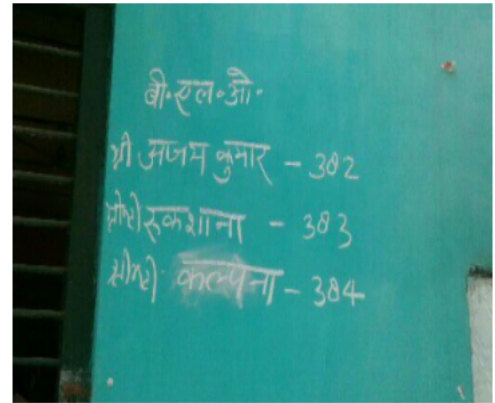 बी॰एल॰ओ॰
श्री अजय कुमार - 382
श्रीमती रुकशाना - 383
श्रीमती कल्पना - 384